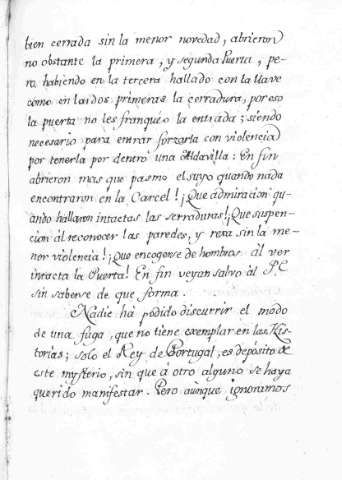 bien cerrada sin la menor novedad, abrieron
no obstante la primera, y segunda Puerta, pe-
ro habiendo en la tercera hallado con la llave
como en las dos primeras la cerradura, por eso
la puerta no les franqueo la entrada; siendo
necesario para entrar forzarla con violencia
por tenerla por dentro una Aldavilla: En fin
abrieron mas que pasmo el suyo quando nada
encontraron en la Carcel! ¡Que admiracion qu-
ando hallaron intactas las serraduras! ¡Que suspen-
cion al reconocer las paredes, y rexa sin la me-
nor violencia! ¡Que encogerse de hombros al ver
intacta la Puerta! En fin veyan salvo al P. E
sin saberse de que forma.
Nadie há podido discurrir el modo
de una fuga, que no tiene exemplar en las His-
torias; solo el Rey de Portugal, es depósito de
este mysterio, sin que á otro alguno se haya
querido manifestar. Pero aunque ignoramos